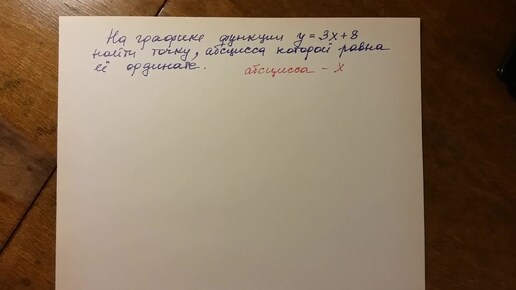 На графике функции y = 3x + 8
найти точку, абсцисса которой равна
её ординате. абсцисса - x